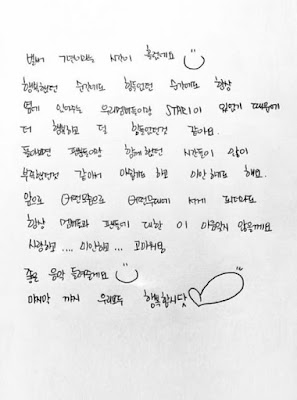 벌써 7년이라는 시간이 흘렀네요
행복했던 순간에도 힘들었던 순간에도 항상
옆에 있어주는 우리멤버들이랑 STAR이 있었기 때문에
더 행복하고 덜 힘들었던것 같아요.
돌아보면 팬분들이랑 함께했던 시간들이 많이
부족했던것 같아서 아쉽기도 하고 미안하기도 해요.
앞으로 어떤모습으로 어떤무대에 서게 되더라도
항상 멤버들과 팬들에 대한 이 마음잊지 않을께요
사랑하고 .... 미안하고 ... 고마워요
좋은 음악 들려줄게요
마지막 까지 우리모두 행복합시닷